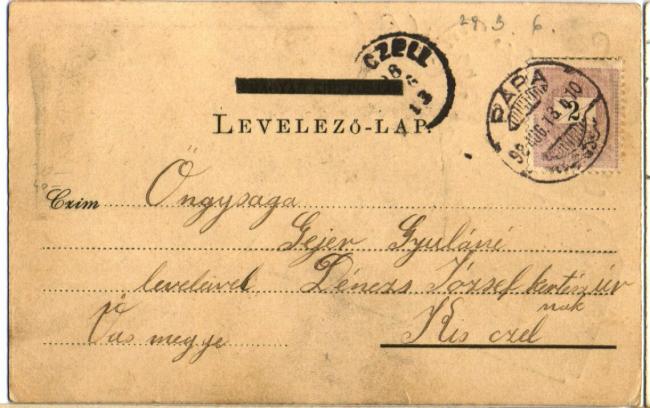 29. 3. 6.
CZELL
98
13
PÁPA
98 AUG. 13
2
LEVELEZŐ-LAP.
Czim Őngysaga
Gejer Gyuláné
leveleivel Dénezs József kertész úr
nak
Vas megye Kis czel